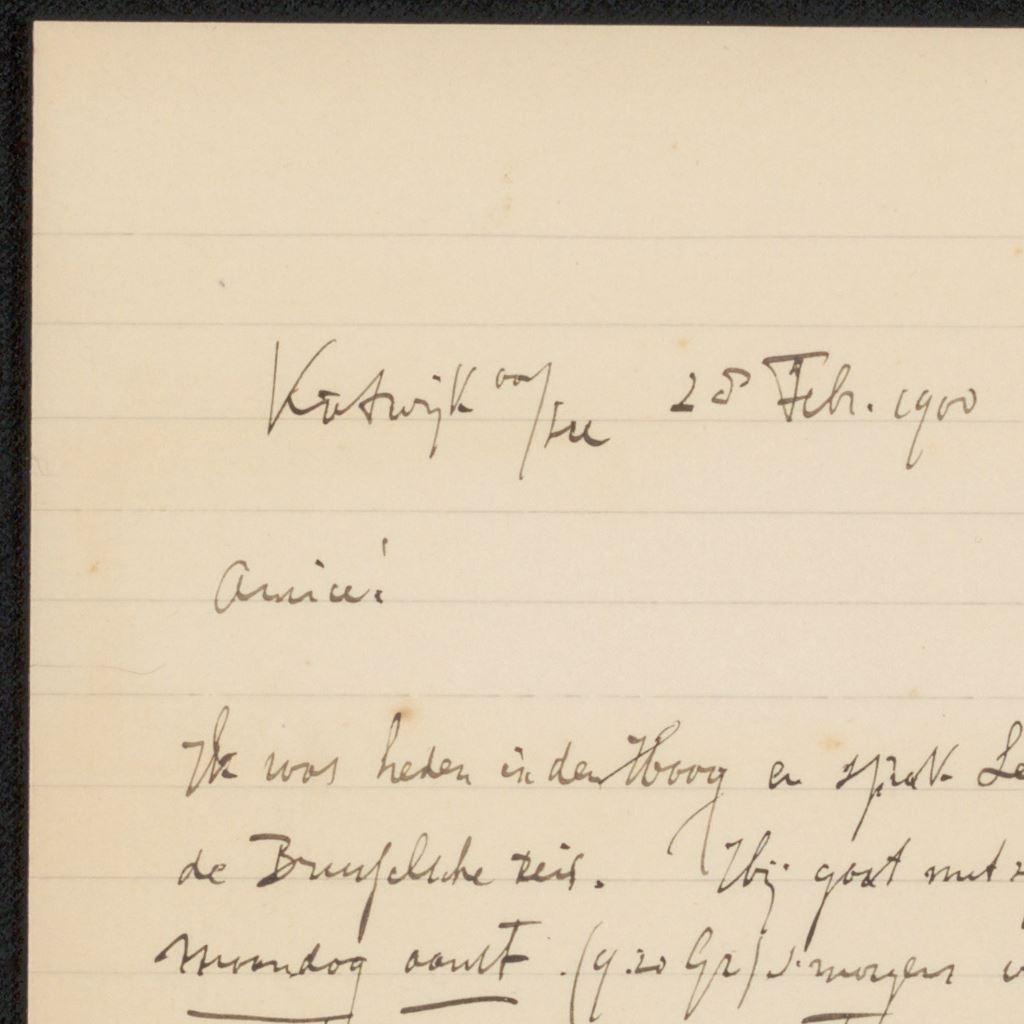 Katwijk aan/zee 28 Febr. 1900
Amice!
Ik was heden in den Haag en sprak
de Brusselsche reis. Hij gaat met
maandag aanst. (9.20 Gr) 's morgens